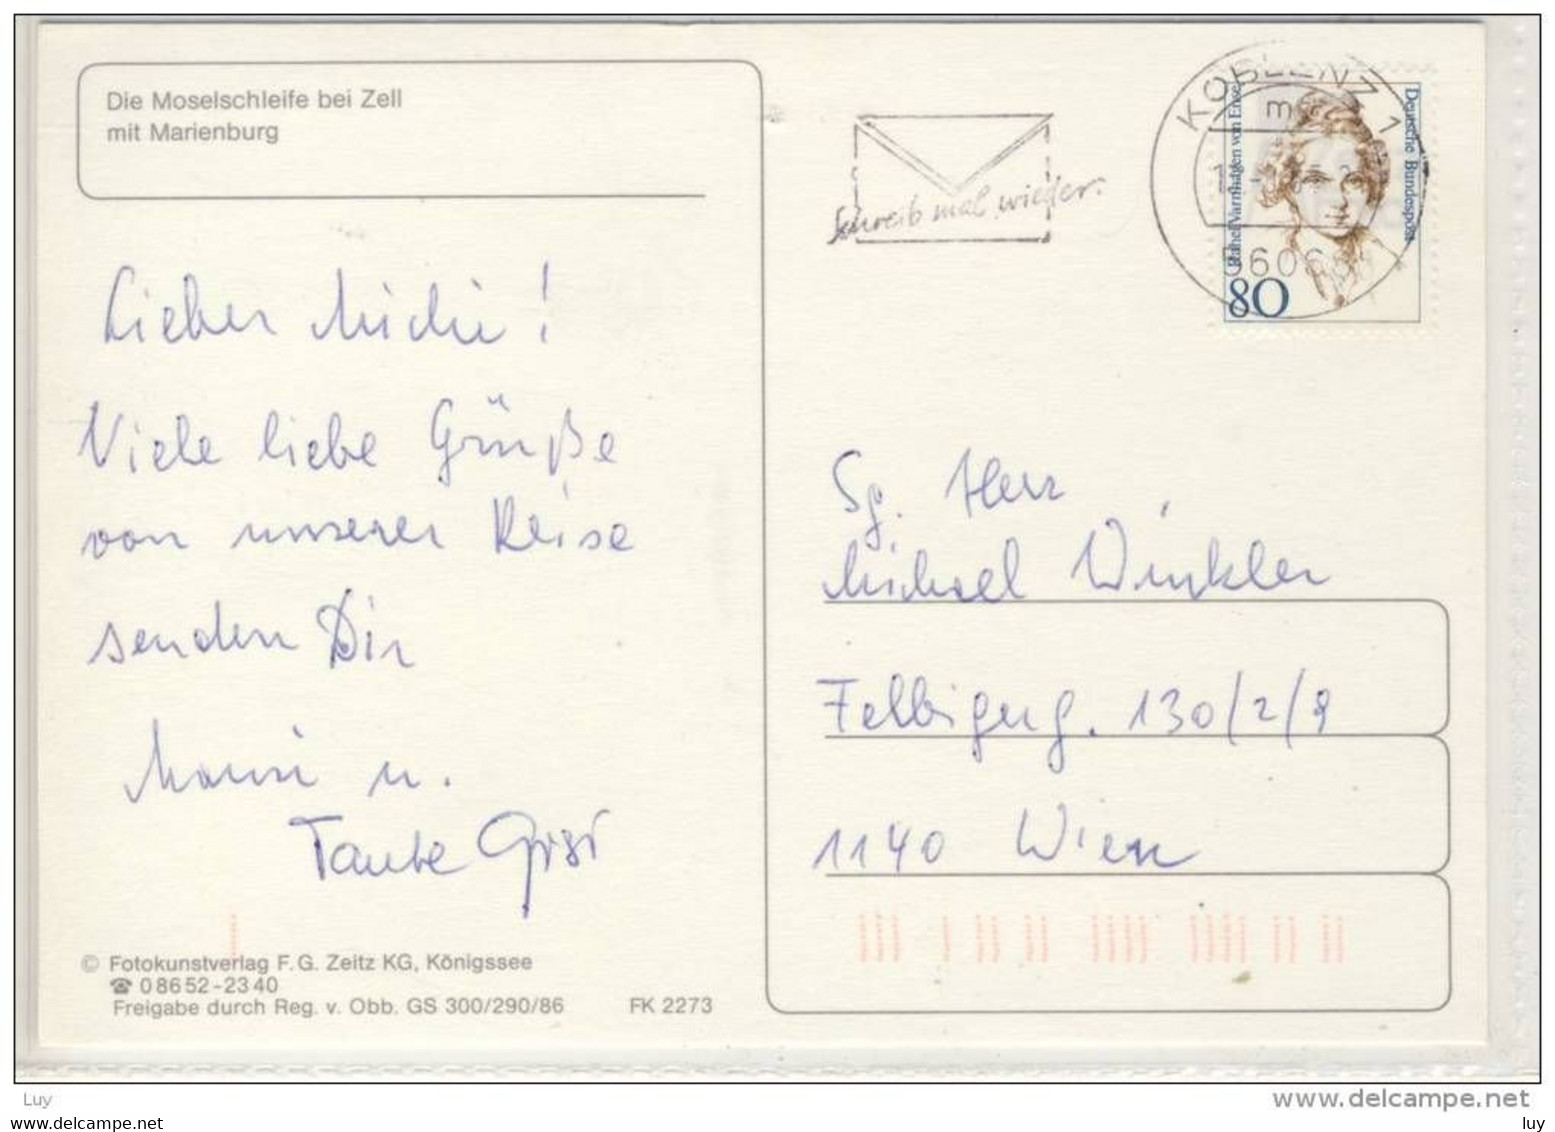 Die Moselschleife bei Zell
mit Marienburg
Lieber Michi!
Viele liebe Grüße
von unserer Reise
senden Dir
u.
Tante Gisi
© Fotokunstverlag F. G. Zeitz KG, Königssee
☎ 0 86 52 - 23 40
Freigabe durch Reg. v. Obb. GS 300/290/86 FK 2273
Schreib mal wieder.
KOBLENZ 1
56068
Deutsche Bundespost
Rahel Varnhagen von Ense
80
Sg. Herr
Michael Winkler
Felbigerg. 130/2/9
1140 Wien
Luy
www.delcampe.net
www.delcampe.net
luy